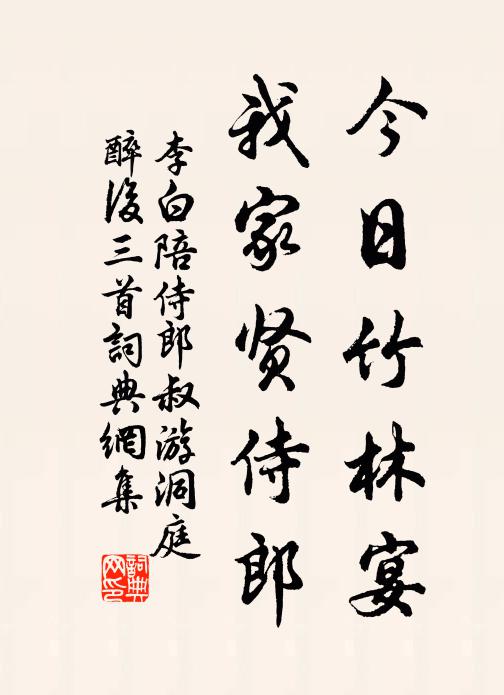 今日竹林宴
我家贤侍郎
李白陪侍郎叔游洞庭
醉後三首詞典網集
詞典
网印